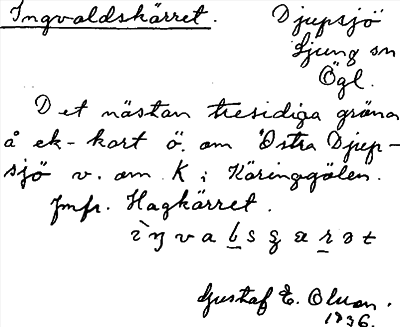 Ingvaldskärret. Djupsjö
Ljung sn
Ögl.
Det nästan tresidiga gröna
å ek-kart ö. om Östra Djup-
sjö v. om K i Käringgölen.
Jmfr. Hagkärret.
Gustaf E. Olson.
1936.